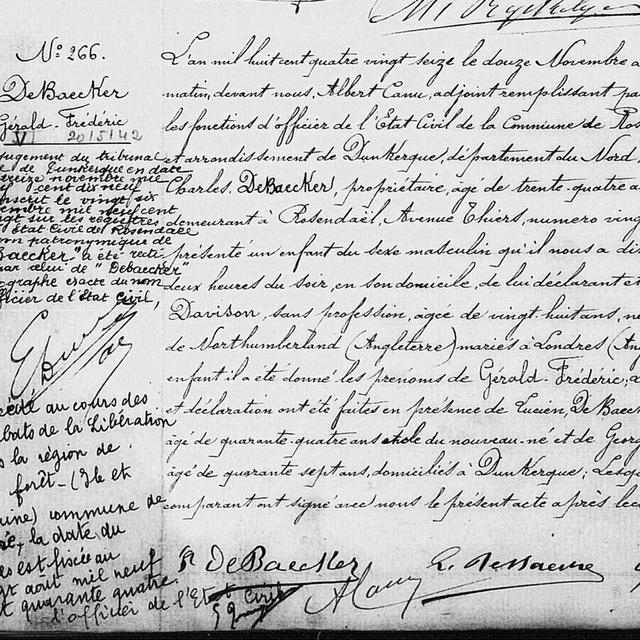 N° 266.
DeBaecker
Gérald-Frédéric
2015142
jugement du tribunal
de Dunkerque en date
treize novembre mil
cent dix neuf
inscrit le vingt six
embre mil neuf cent
gt sur les registres
Etat Civil de Rosendael
om patronymique de
Baecker" a été recti-
par celui de "Debaecker"
ographe exacte du nom
fficier de l'Etat Civil,
cédé au cours des
bats de la Libération
la région de
forêt - (Ile et
aine) commune de
la date du
es est fixée au
gt aout mil neuf
t quarante quatre.
l'officier de l'Etat Civil
L'an mil huit cent quatre vingt seize le douze Novembre a
matin, devant nous, Albert Canu, adjoint remplissant pa
les fonctions d'officier de l'Etat Civil de la Commune de Ros
et arrondissement de Dunkerque, département du Nord
Charles, DeBaecker, propriétaire, âgé de trente-quatre a
demeurant à Rosendaël, Avenue Thiers, numero ving
présenté un enfant du sexe masculin qu'il nous a di
deux heures du soir, en son domicile, de lui déclarant e
Davison, sans profession, âgée de vingt-huit ans, né
de Northumberland (Angleterre) mariés à Londres (An
enfant il a été donné les prénoms de Gérald-Frédéric,
et déclaration ont été faites en présence de Lucien, DeBaec
âgé de quarante-quatre ans oncle du nouveau-né et de Georg
âgé de quarante sept ans, domiciliés à Dunkerque; Lesq
comparant ont signé avec nous le présent acte après lec
DeBaecker